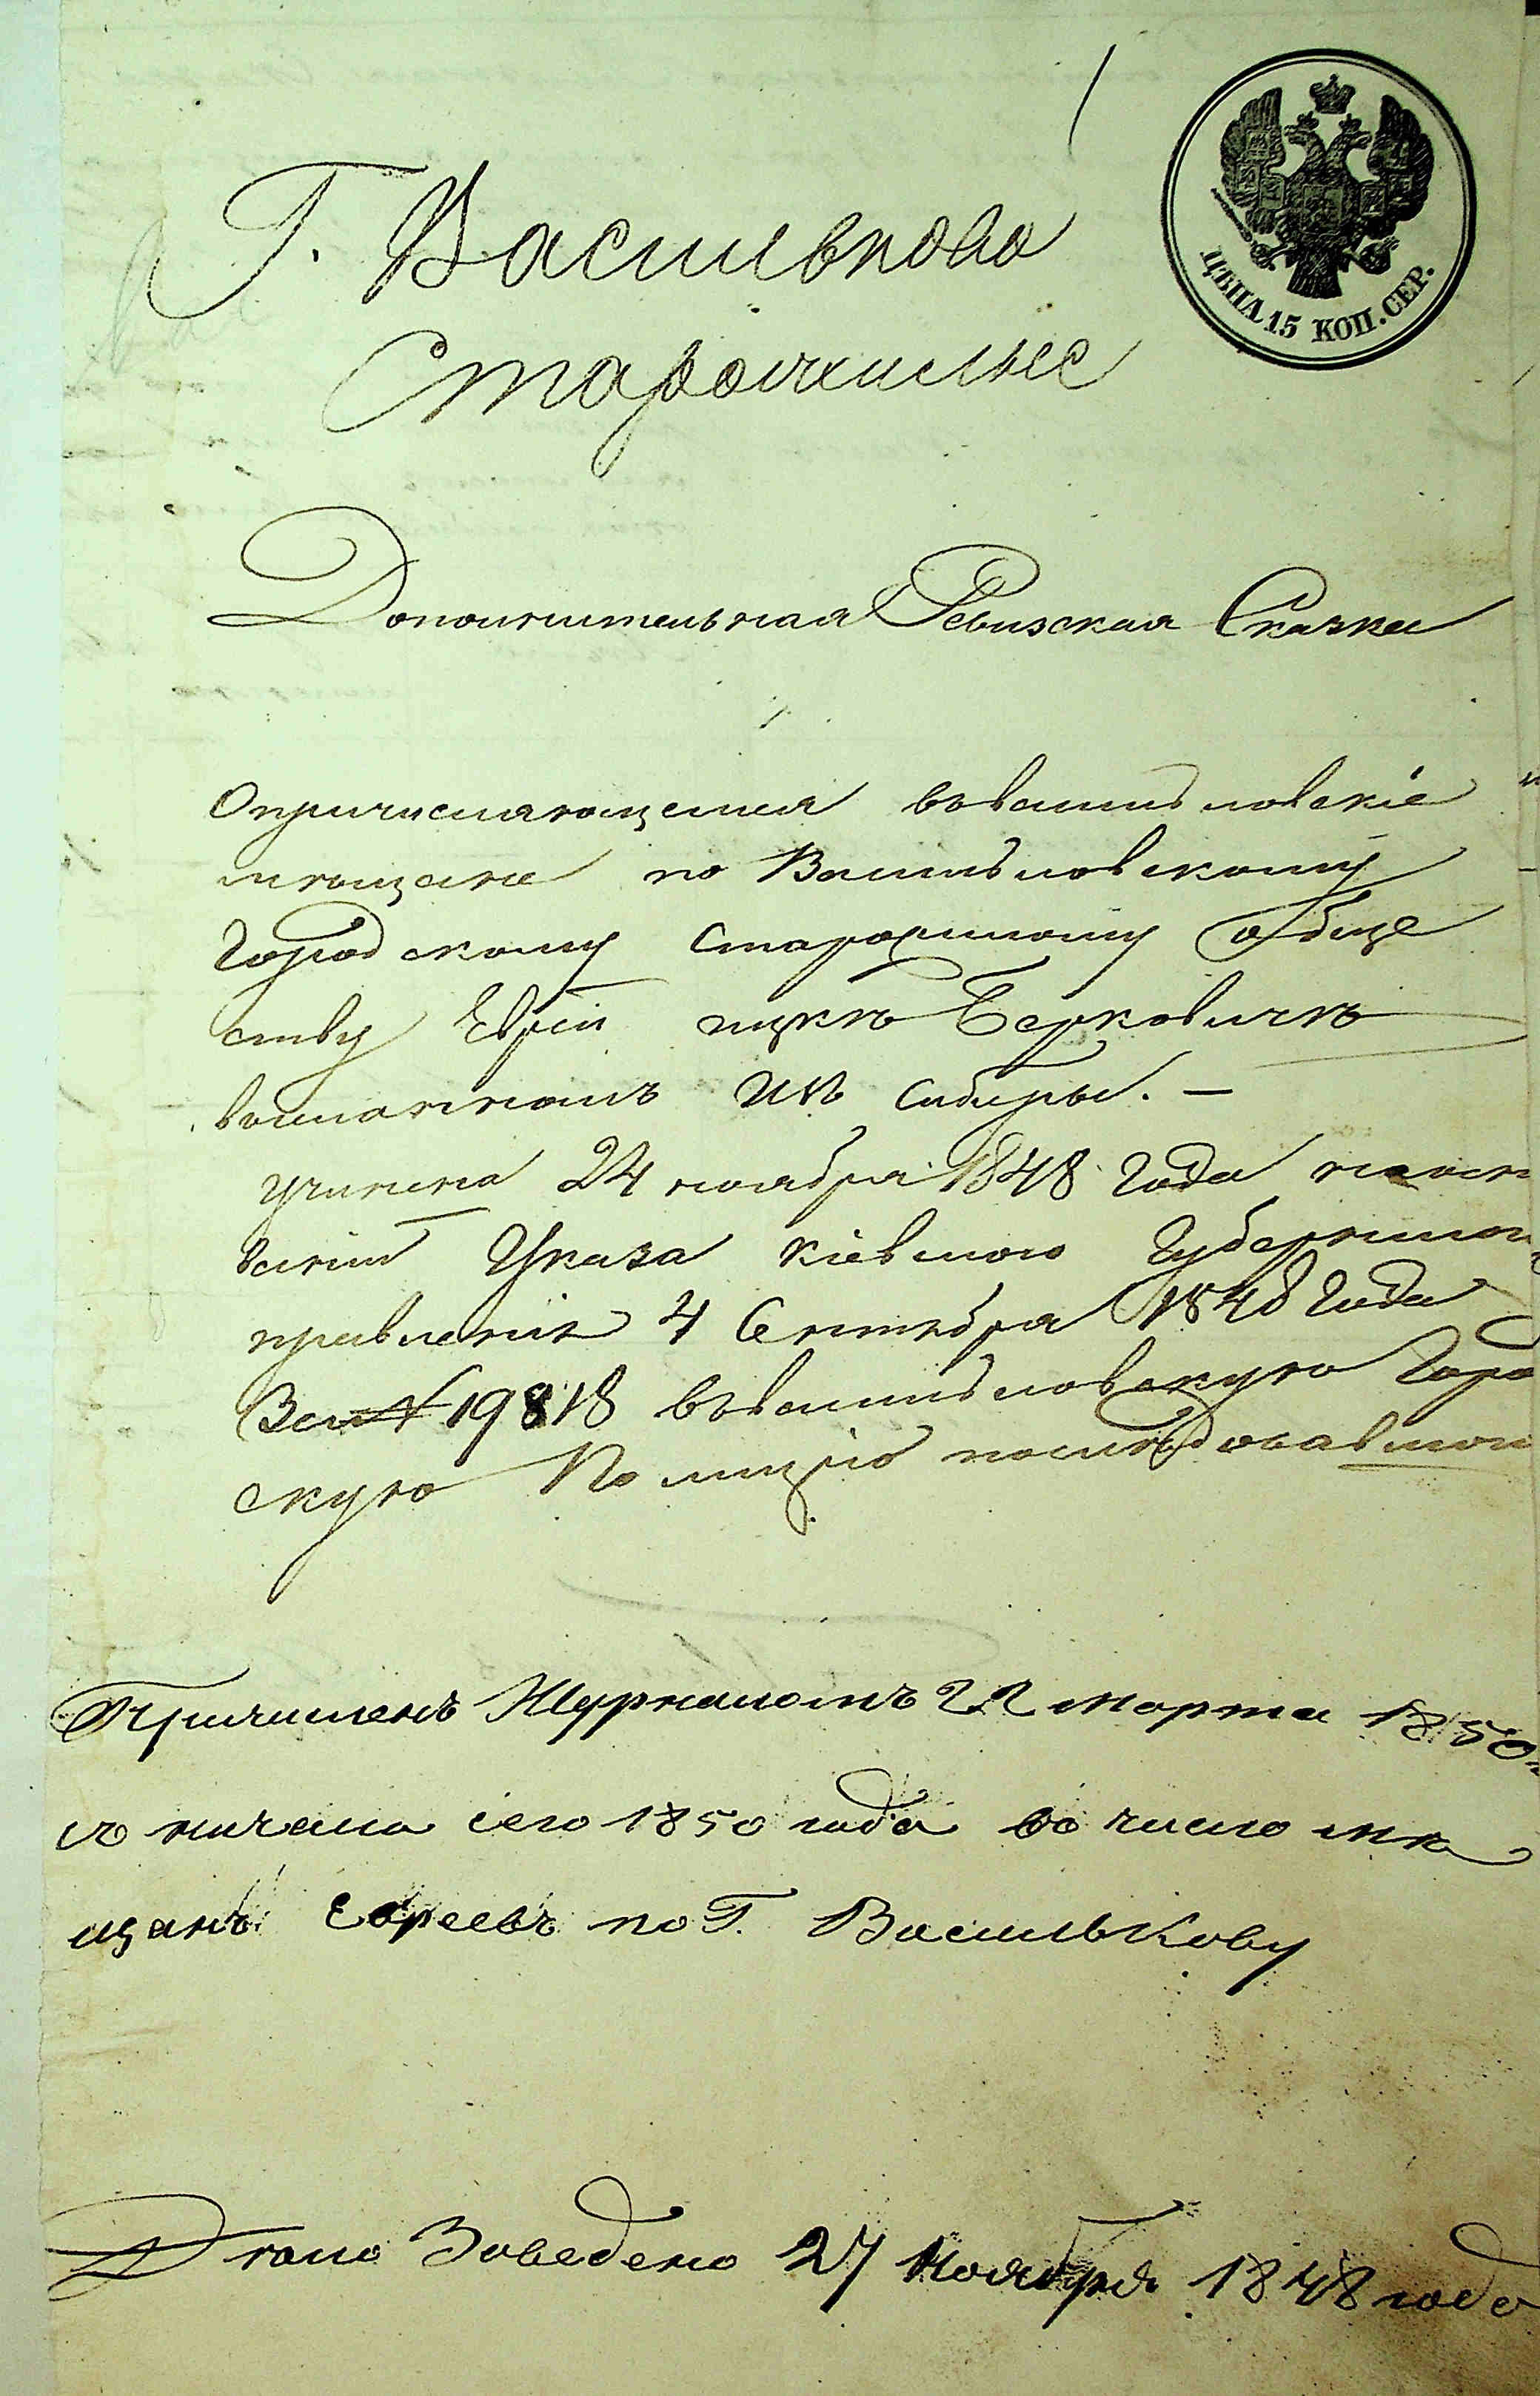 ЦѢНА 15 КОП. СЕР.
Г. Василькова
Старожилые
Дополнительная Ревизская Сказка
О причисляющемся въ Васильковскіе
мѣщане по Васильковскому
Городскому Старожилому обще
ству Еврей Ицкѣ Берковичѣ
возвращенномъ изъ Сибиры. —
учинена 24 ноября 1848 Года на осно
ваніи Указа Кіевского Губернского
правленія 4 Сентября 1848 Года
За № 19818 въ Васильковскую Горо
скую Полицію последовавшого
Причисленъ Журналомъ 22 Марта 1850
съ начала сего 1850 года во число мѣ
щанъ Евреевъ по Г. Василькову
Дѣло Заведено 27 Ноября 1848 года